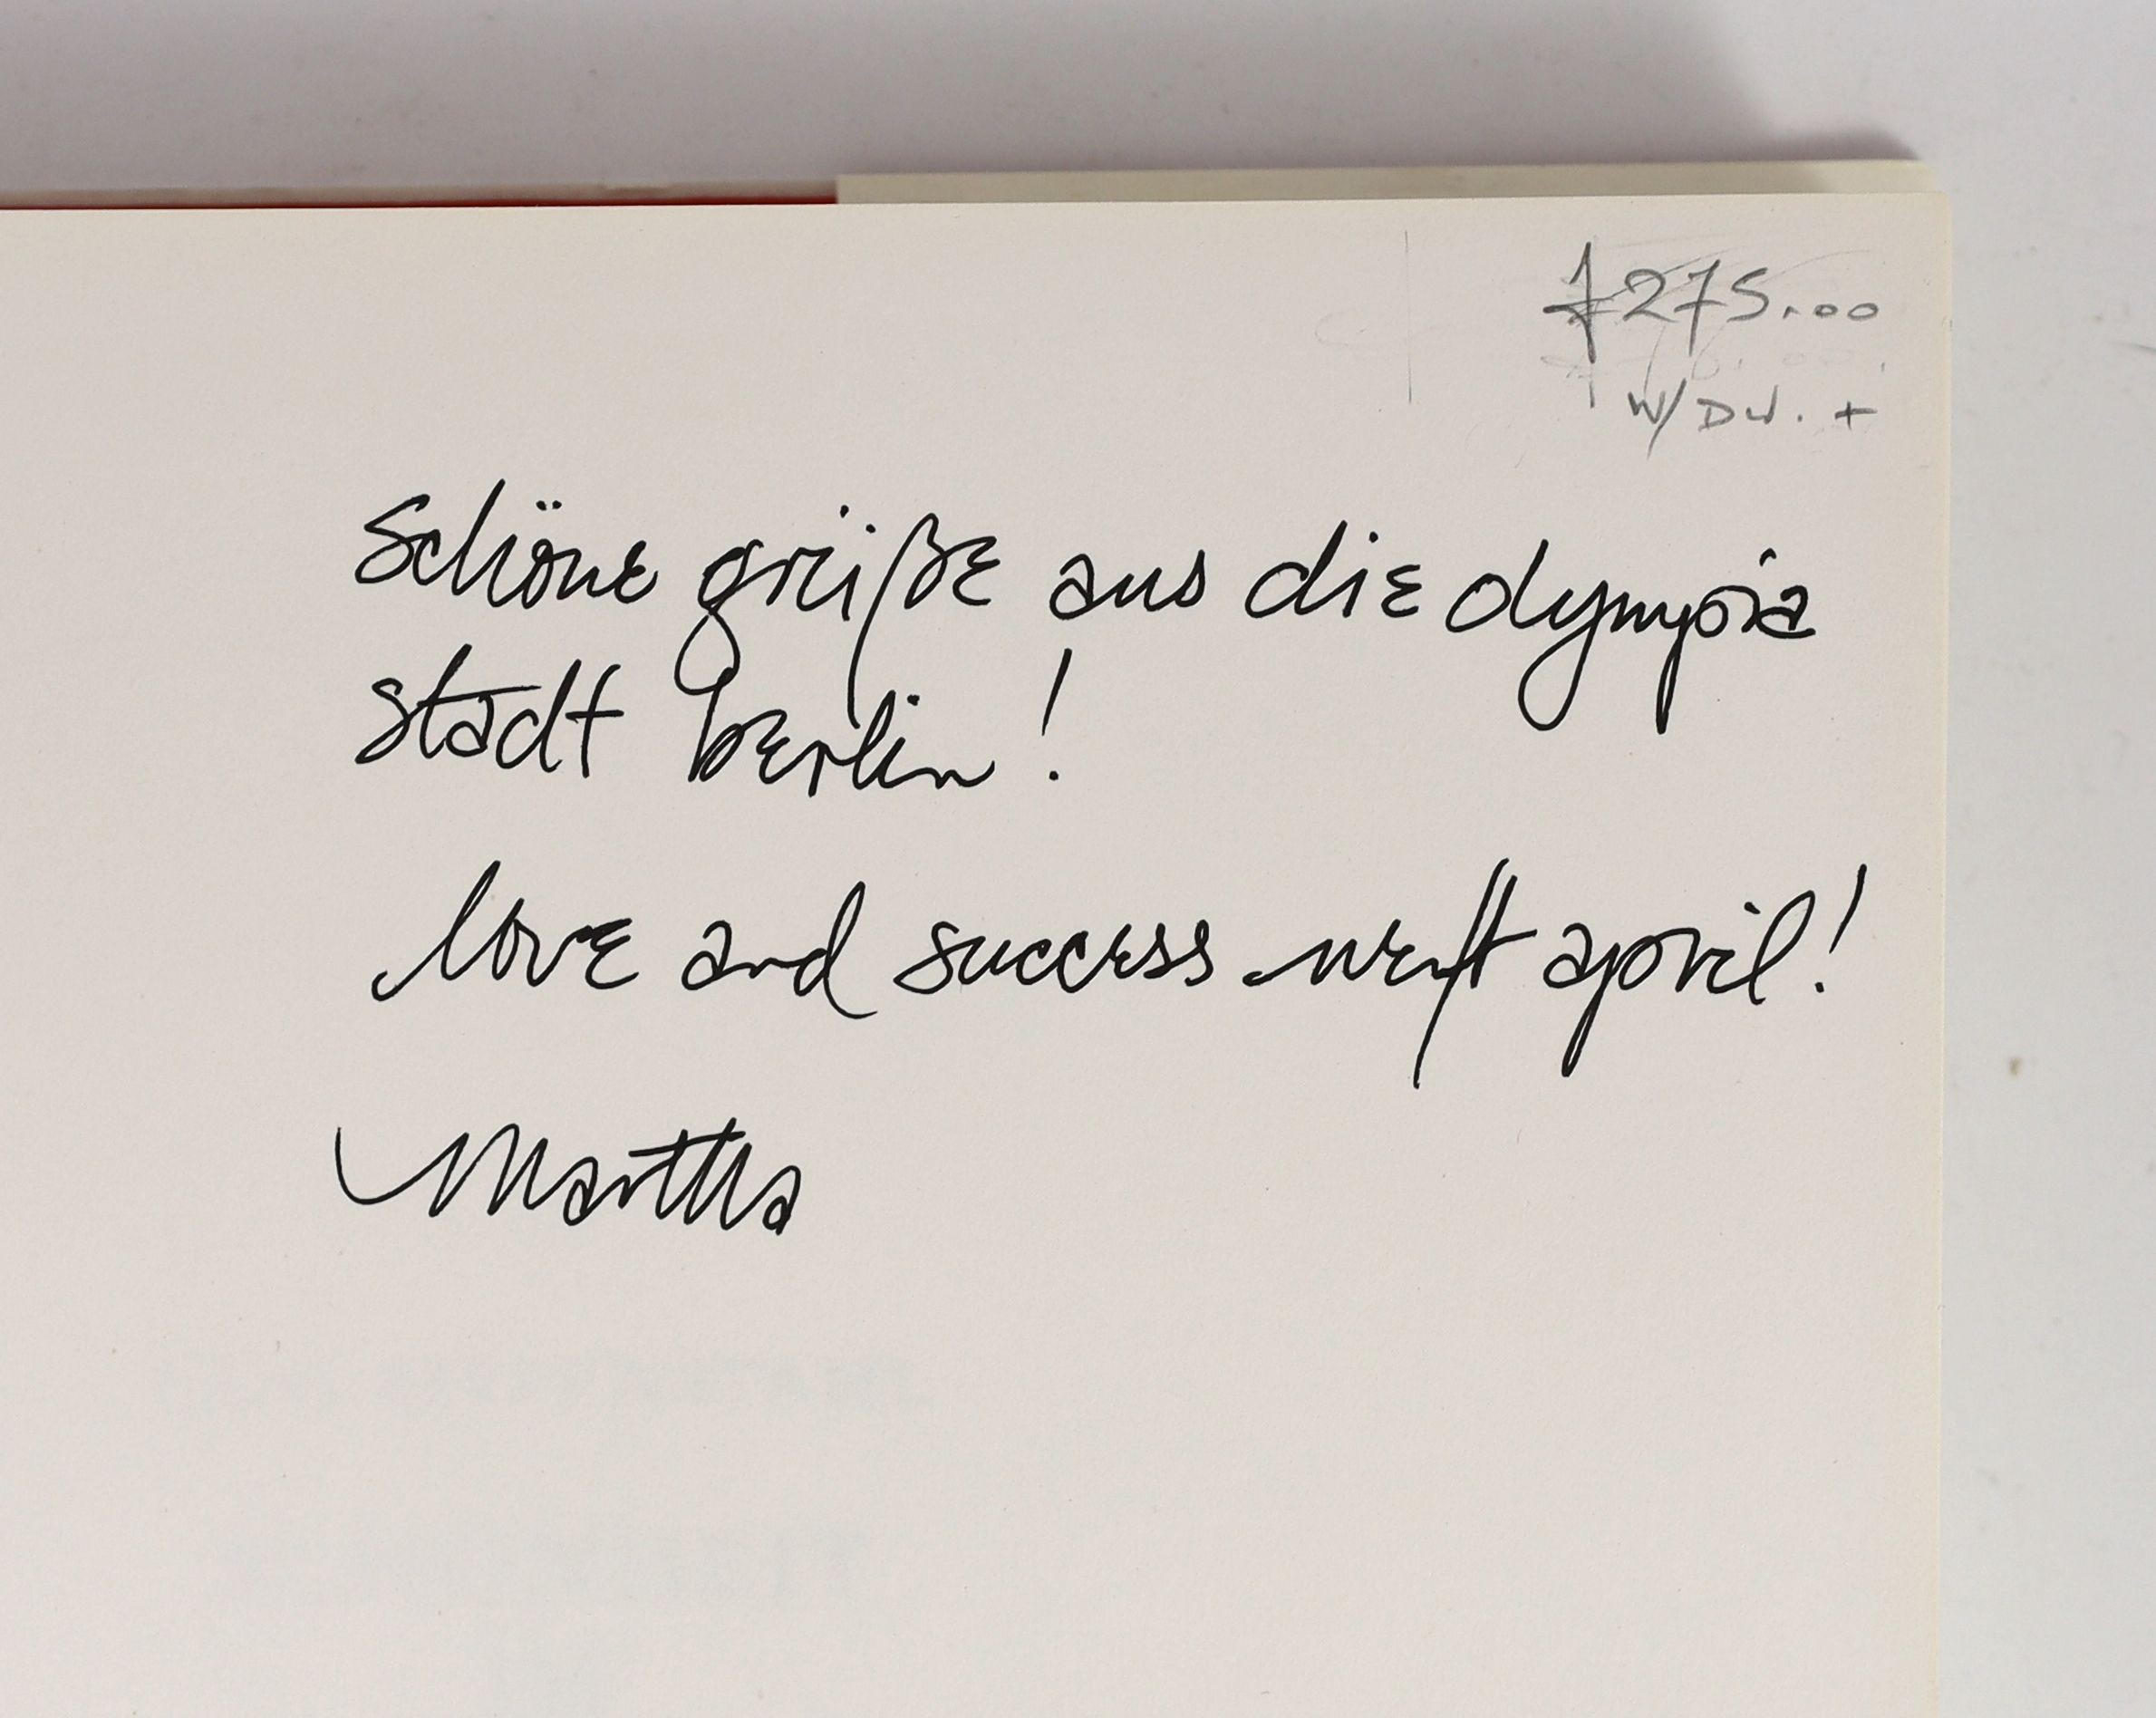 275.00
W/DW. +
Schöne grüße aus die olympia
stadt berlin!
love and success next april!
Martha